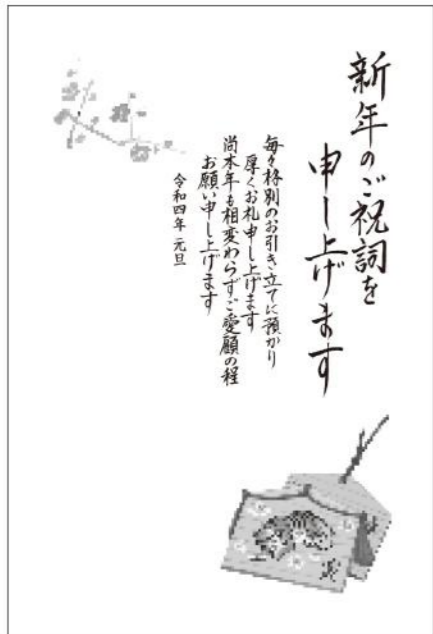 新年のご祝詞を
申し上げます
毎々格別のお引き立てに預かり
厚くお礼申し上げます
尚本年も相変わらずご愛顧の程
お願い申し上げます
令和四年 元旦